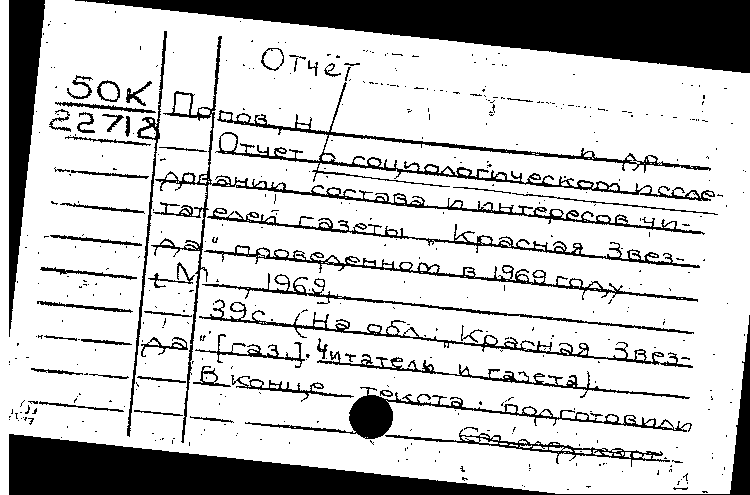 Отчет
50К
22718
Попов, Н и др.
Отчет о социологическом иссле-
довании состава и интересов чи-
тателей газеты „Красная Звез-
да", проведенном в 1969 году
М., 1969.
39с. (На обл.: „Красная Звез-
да" [газ.]. Читатель и газета).
В конце текста: подготовили
См. след. карт.